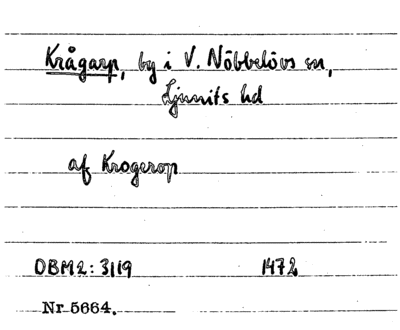 Krågarp, by i V. Nöbbelövs sn,
Ljunits hd
af Krogerop
DBM2: 3119 1472
Nr 5664.